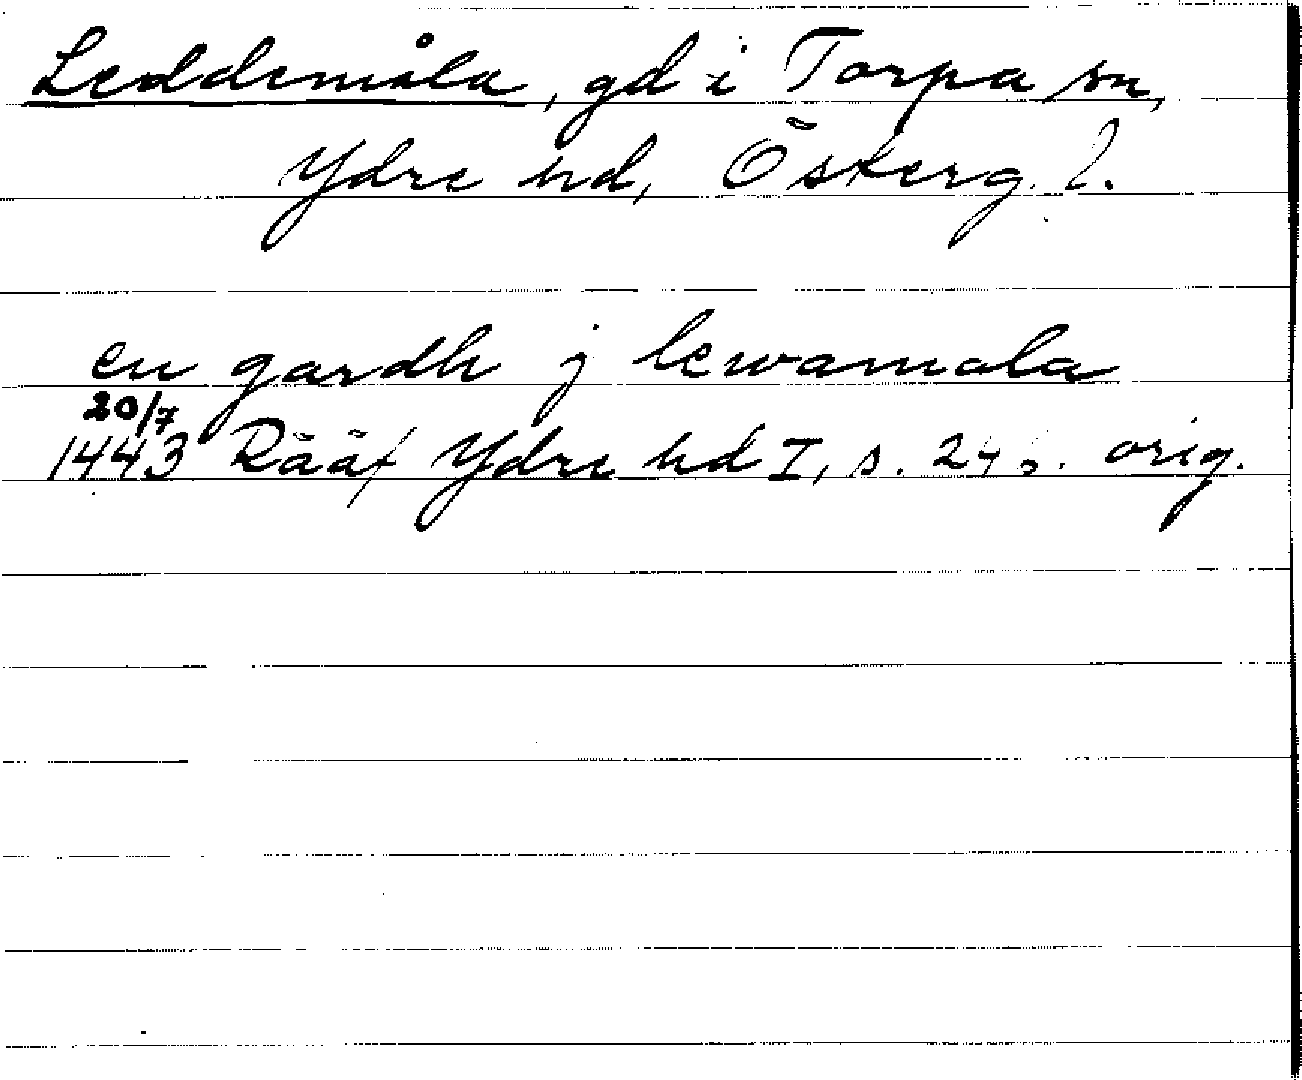 Leddemåla, gd i Torpa sn,
Ydre hd, Österg. l.
en gardh j lewamala
20/7
1443 Rääf Ydre hd I, s. orig.